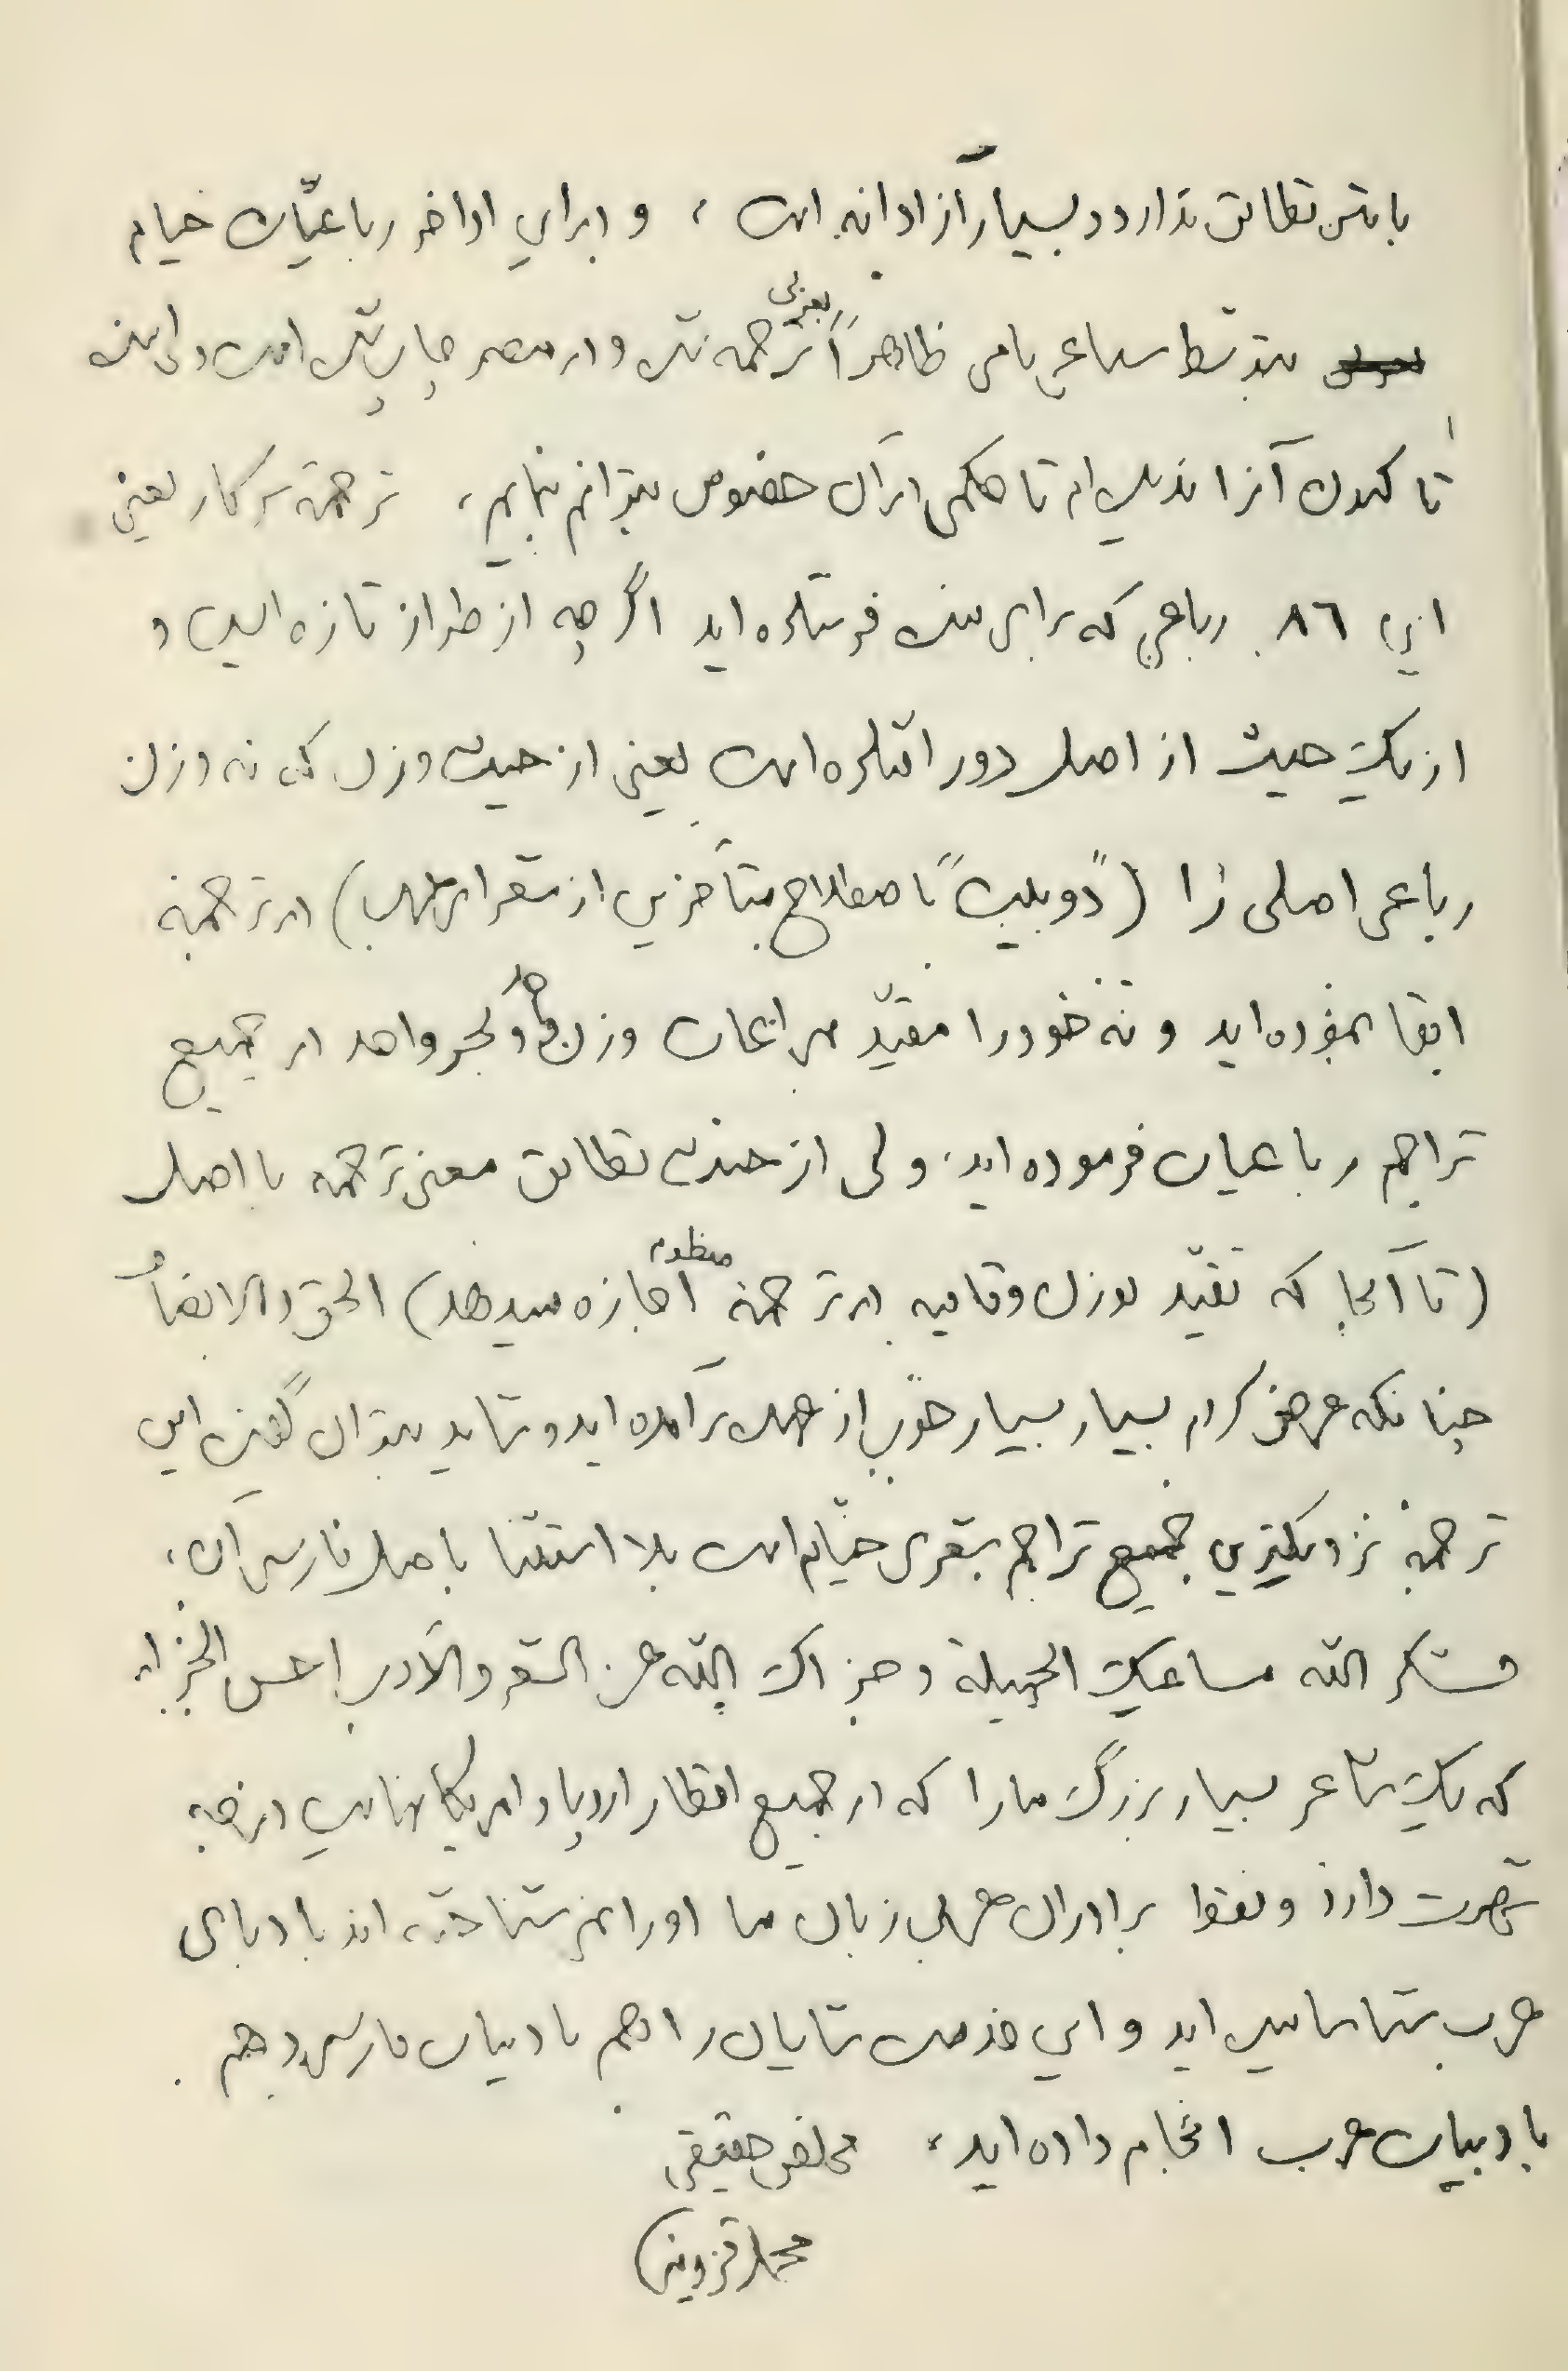 با متن تطابق ندارد و بسیار آزادانه است ، و در این اواخر رباعیّات خیام
بتوسّط سباعی نامی ظاهراً بعربی ترجمه شده و در مصر چاپ شده است ولی بنده
تا کنون آنرا ندیده‌ام تا حکمی در آن خصوص بتوانم بنمایم ، ترجمهٔ سرکار یعنی
این ٨٦ رباعی که برای بنده فرستاده اید اگر چه از طراز تازه ایست و
از یک حیث از اصل دور افتاده است یعنی از حیث وزن که نه وزن
رباعی اصلی را («دوبیت» باصطلاح متأخرین از شعرای عرب) در ترجمه
ابقا نموده اید و نه خود را مقیّد بمراعات وزن واحد و بحر واحد در جمیع
تراجم رباعیات فرموده اید ، ولی از حیث تطابق معنی ترجمه با اصل
(تا آنجا که تقیّد بوزن و قافیه در ترجمهٔ منظوم اجازه میدهد) الحق والانصاف
چنانکه عرض کردم بسیار بسیار خوب از عهده برآمده اید و شاید بتوان گفت این
ترجمه نزدیکترین جمیع تراجم شعری خیّام است بلا استثنا باصل فارسی آن ،
فشکر الله مساعیک الجمیلة و جزاک الله عن الشعر والأدب احسن الجزاء
که یک شاعر بسیار بزرگ ما را که در جمیع اقطار اروپا و امریکا نهایت درجه
شهرت دارد و فقط برادران عرب زبان ما او را نمی شناخته اند بادبای
عرب شناسانیده اید و این خدمت شایان را هم بادبیات فارسی و هم
بادبیات عرب انجام داده اید ، مخلص حقیقی
محمد قزوینی